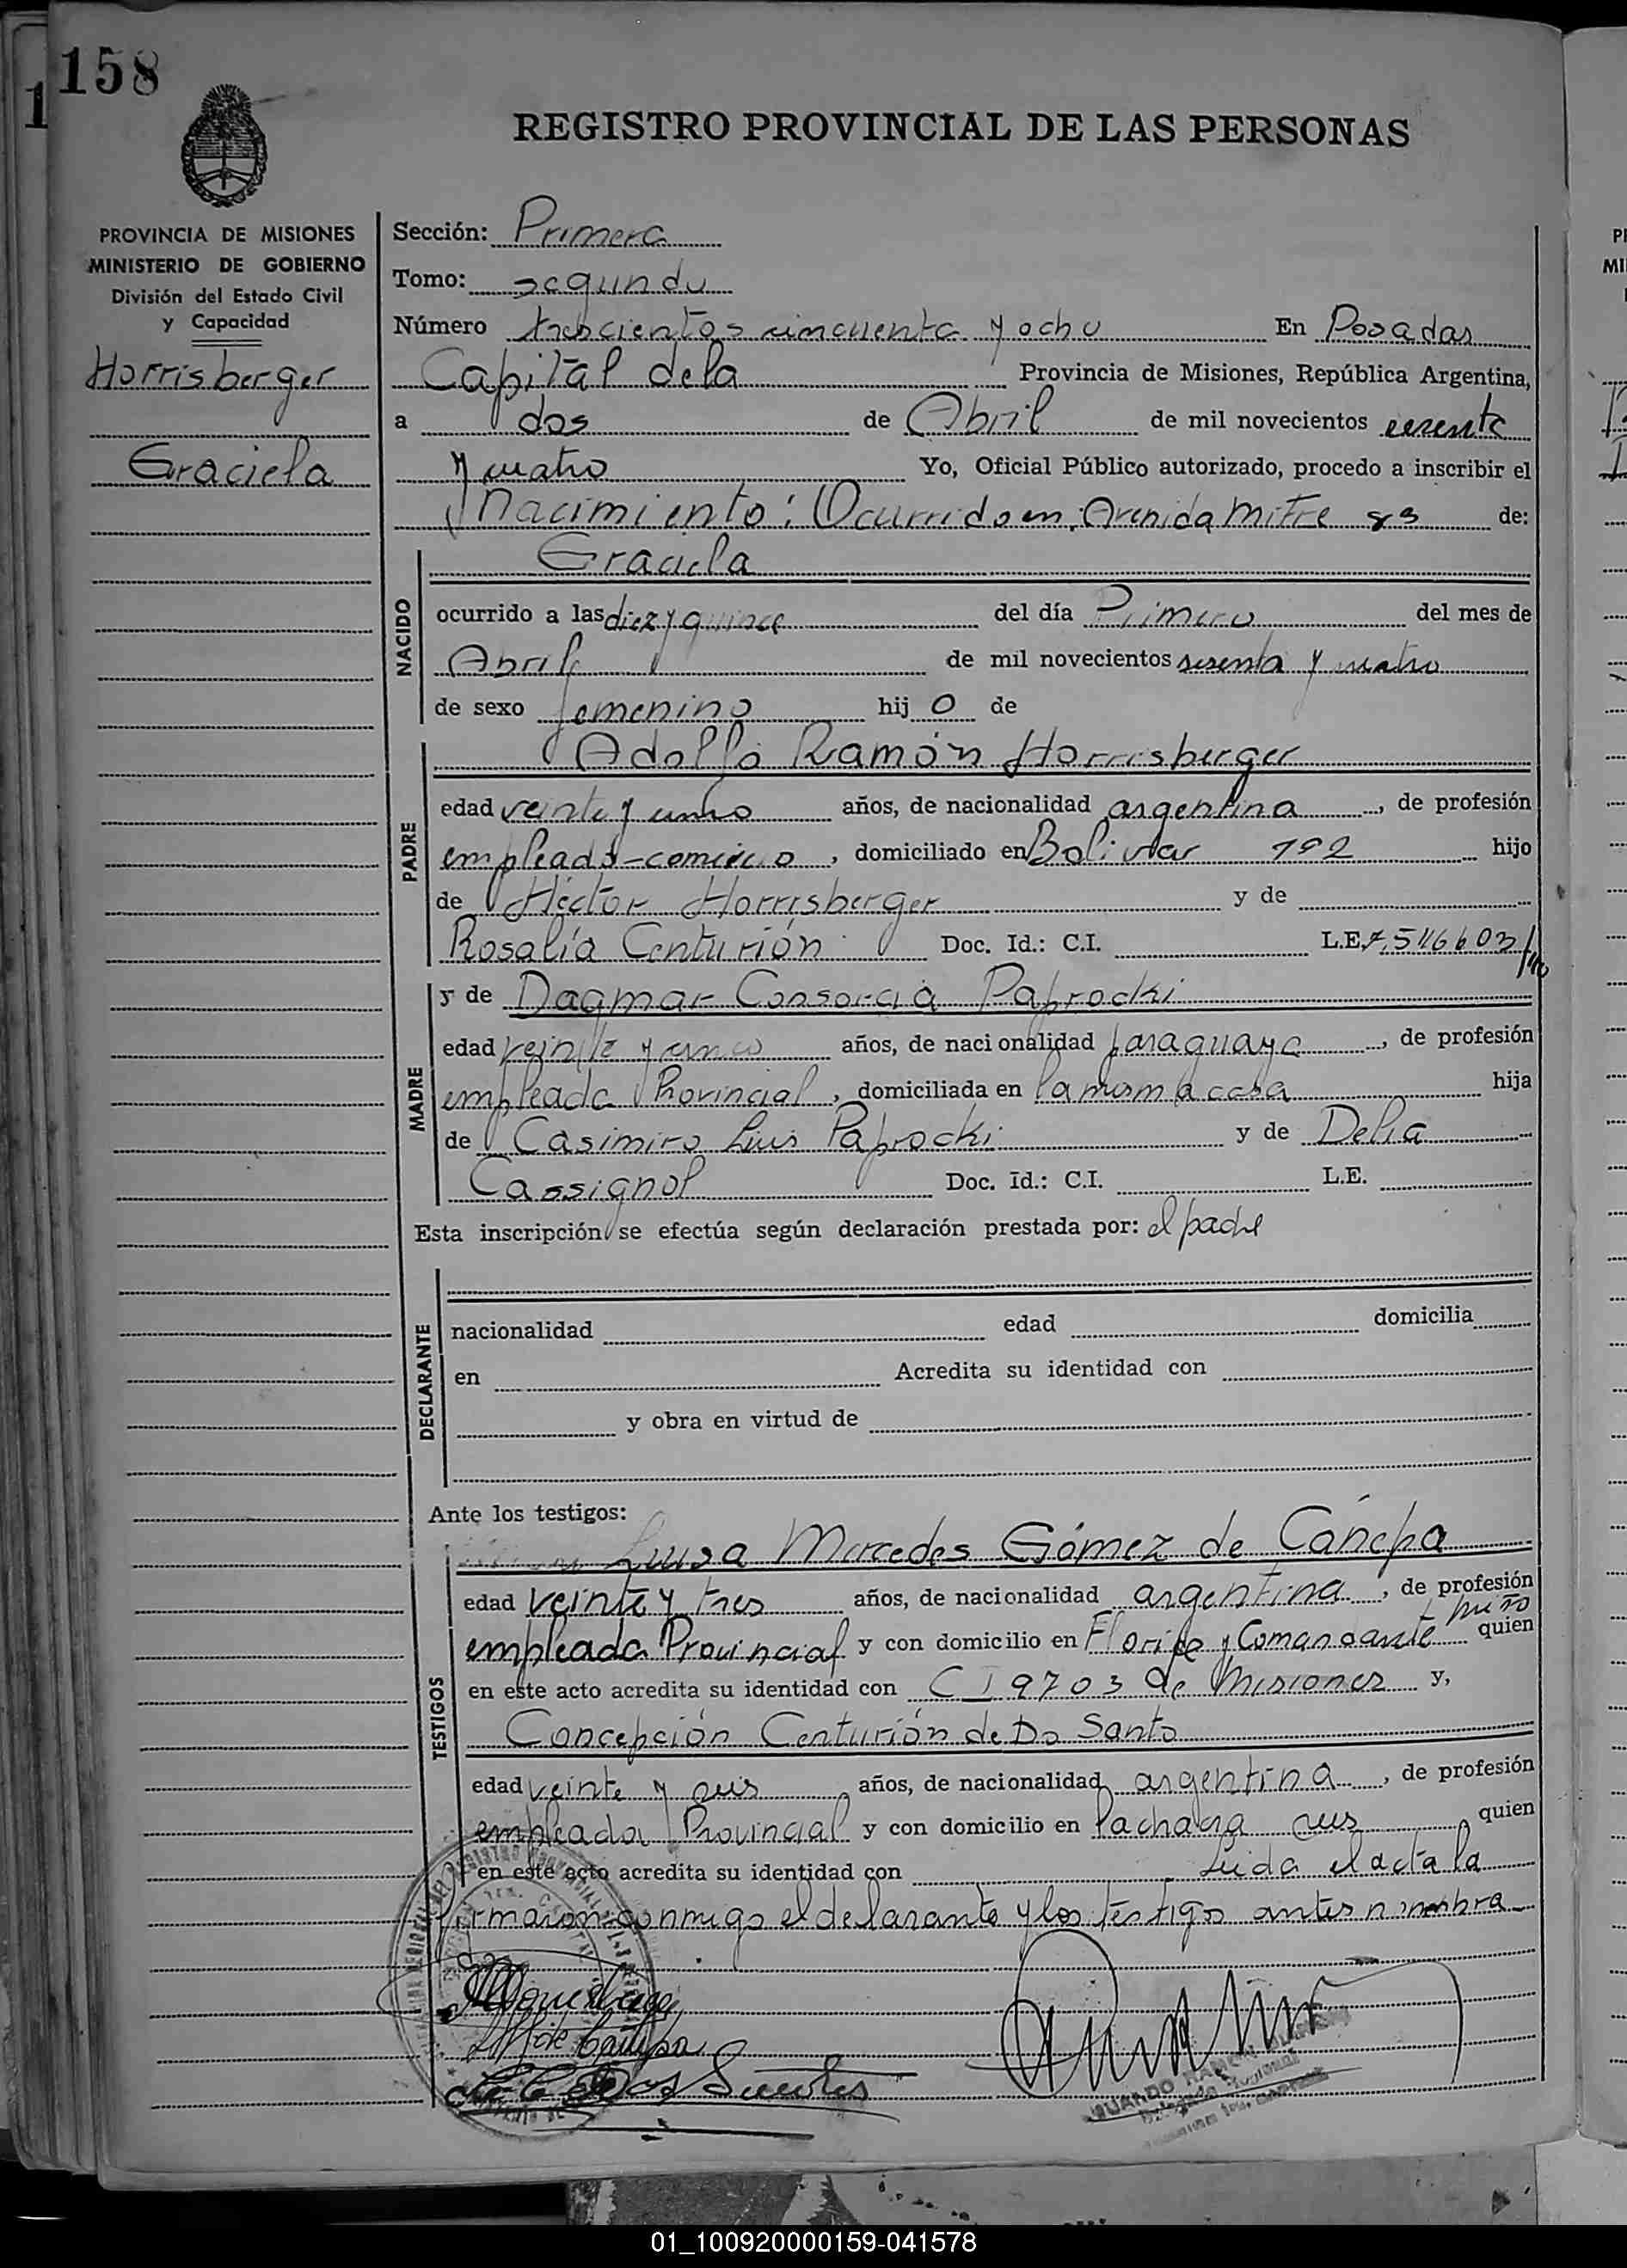 158
1
REGISTRO PROVINCIAL DE LAS PERSONAS
PROVINCIA DE MISIONES
MINISTERIO DE GOBIERNO
División del Estado Civil
y Capacidad
Horrisberger
Graciela
Sección: Primera
Tomo: segundo
Número trescientos cincuenta y ocho En Posadas
Capital de la Provincia de Misiones, República Argentina,
a dos de Abril de mil novecientos sesenta
y cuatro Yo, Oficial Público autorizado, procedo a inscribir el
Nacimiento: Ocurrido en, Avenida Mitre de:
NACIDO
Graciela
ocurrido a las diez y quince del día Primero del mes de
Abril de mil novecientos sesenta y cuatro
de sexo femenino hij o de
PADRE
Adolfo Ramón Horrisberger
edad veinte y años, de nacionalidad argentina, de profesión
empleado-comercio, domiciliado en Bolivar 192 hijo
de Héctor Horrisberger y de
Rosalía Centurión Doc. Id.: C.I. L.E. 7.546603
MADRE
y de Dagmar Consorcia Paprocki
edad veinte y cinco años, de nacionalidad paraguaya, de profesión
empleada Provincial, domiciliada en la misma casa hija
de Casimiro Luis Paprocki y de Delia
Cassignol Doc. Id.: C.I. L.E.
Esta inscripción se efectúa según declaración prestada por: el padre
DECLARANTE
nacionalidad edad domicilia
en Acredita su identidad con
y obra en virtud de
Ante los testigos:
TESTIGOS
Luisa Mercedes Gómez de Canepa
edad veinte y tres años, de nacionalidad argentina, de profesión
empleada Provincial y con domicilio en Florida y Comandante Miño quien
en este acto acredita su identidad con C I 9703 de Misiones y,
Concepción Centurión de Do Santo
edad veinte y seis años, de nacionalidad argentina, de profesión
empleada Provincial y con domicilio en la chacra quien
en este acto acredita su identidad con Leida el acta la
firmaron conmigo el declarante y los testigos antes nombra
01_100920000159-041578